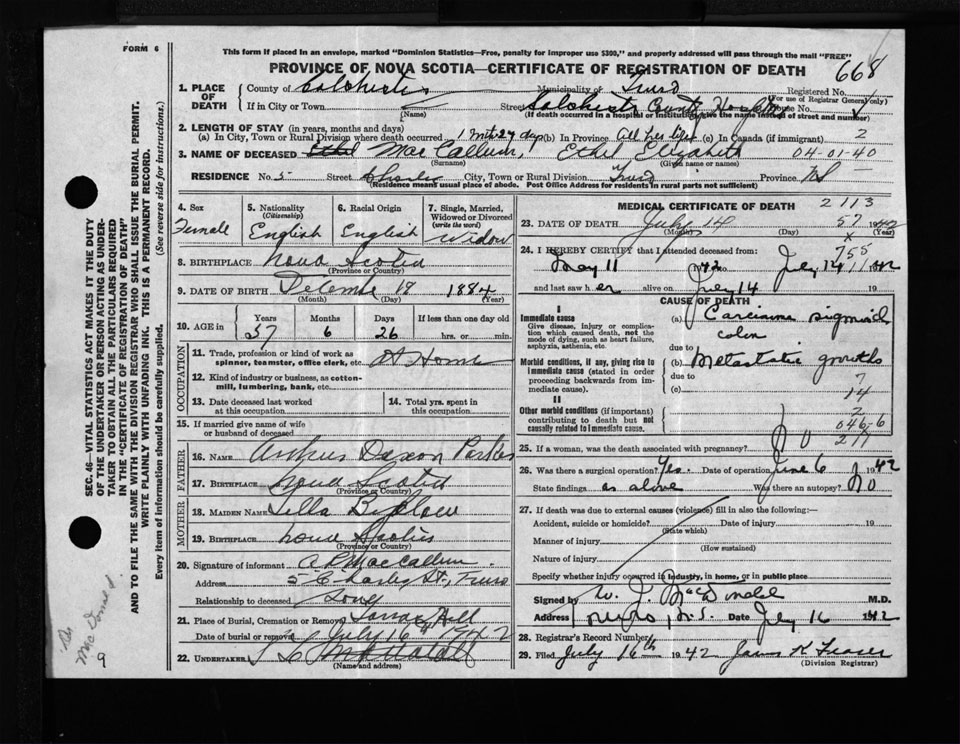 FORM 6
This form if placed in an envelope, marked "Dominion Statistics—Free, penalty for improper use $300," and properly addressed will pass through the mail "FREE"
PROVINCE OF NOVA SCOTIA—CERTIFICATE OF REGISTRATION OF DEATH 668
1. PLACE OF DEATH County of Colchester Municipality of Truro Registered No.
(For use of Registrar General only)
If in City or Town Street Colchester County Hospital House No.
(Name) (If death occurred in a hospital or institution, give the name instead of street and number)
2. LENGTH OF STAY (in years, months and days)
(a) In City, Town or Rural Division where death occurred 1 mth 29 days (b) In Province All her life (c) In Canada (if immigrant) 2
3. NAME OF DECEASED Ethel MacCallum, Ethel Elizabeth 04-01-40
(Surname) (Given name or names)
RESIDENCE No. 5 Street Charles City, Town or Rural Division Truro Province NS
(Residence means usual place of abode. Post Office Address for residents in rural parts not sufficient)
4. Sex Female
5. Nationality (Citizenship) English
6. Racial Origin English
7. Single, Married, Widowed or Divorced (write the word) Widow
8. BIRTHPLACE Nova Scotia
(Province or Country)
9. DATE OF BIRTH December 18 1884
(Month) (Day) (Year)
10. AGE in Years Months Days If less than one day old
57 6 26 hrs. or min.
OCCUPATION
11. Trade, profession or kind of work as spinner, teamster, office clerk, etc. At Home
12. Kind of industry or business, as cotton-mill, lumbering, bank, etc.
13. Date deceased last worked at this occupation
14. Total yrs. spent in this occupation
15. If married give name of wife or husband of deceased
FATHER
16. Name Arthur Daxon Parker
17. Birthplace Nova Scotia
(Province or Country)
MOTHER
18. Maiden Name Tella Bigelow
19. Birthplace Nova Scotia
(Province or Country)
20. Signature of informant A P MacCallum
Address 5 Charles St., Truro
Relationship to deceased Son
21. Place of Burial, Cremation or Removal
Date of burial or removal July 16th 1942
22. Undertaker
(Name and address)
MEDICAL CERTIFICATE OF DEATH 2113
23. DATE OF DEATH July 14 57 1942
(Month) (Day) (Year)
24. I HEREBY CERTIFY that I attended deceased from: 755
May 11 1942 to July 14 1942
and last saw her alive on July 14 19
CAUSE OF DEATH
I
Immediate cause
Give disease, injury or complication which caused death, not the mode of dying, such as heart failure, asphyxia, asthenia, etc.
(a) Carcinoma sigmoid colon
due to
Morbid conditions, if any, giving rise to immediate cause (stated in order proceeding backwards from immediate cause).
(b) Metastatic growths
due to 7
(c) 14
II
Other morbid conditions (if important) contributing to death but not causally related to immediate cause.
2
046-6
25. If a woman, was the death associated with pregnancy? No
26. Was there a surgical operation? Yes. Date of operation June 6 1942
State findings as above Was there an autopsy? No
27. If death was due to external causes (violence) fill in also the following:—
Accident, suicide or homicide? Date of injury 19
(State which)
Manner of injury
(How sustained)
Nature of injury
Specify whether injury occurred in industry, in home, or in public place
Signed by M.D.
Address Truro, N.S. Date July 16 1942
28. Registrar's Record Number
29. Filed July 16th 1942 James K Fraser
(Division Registrar)
SEC. 46—VITAL STATISTICS ACT MAKES IT THE DUTY OF THE UNDERTAKER OR PERSON ACTING AS UNDERTAKER TO OBTAIN ALL THE PARTICULARS REQUIRED IN THE "CERTIFICATE OF REGISTRATION OF DEATH"
AND TO FILE THE SAME WITH THE DIVISION REGISTRAR WHO SHALL ISSUE THE BURIAL PERMIT.
WRITE PLAINLY WITH UNFADING INK. THIS IS A PERMANENT RECORD.
Every item of information should be carefully supplied. (See reverse side for instructions.)
9